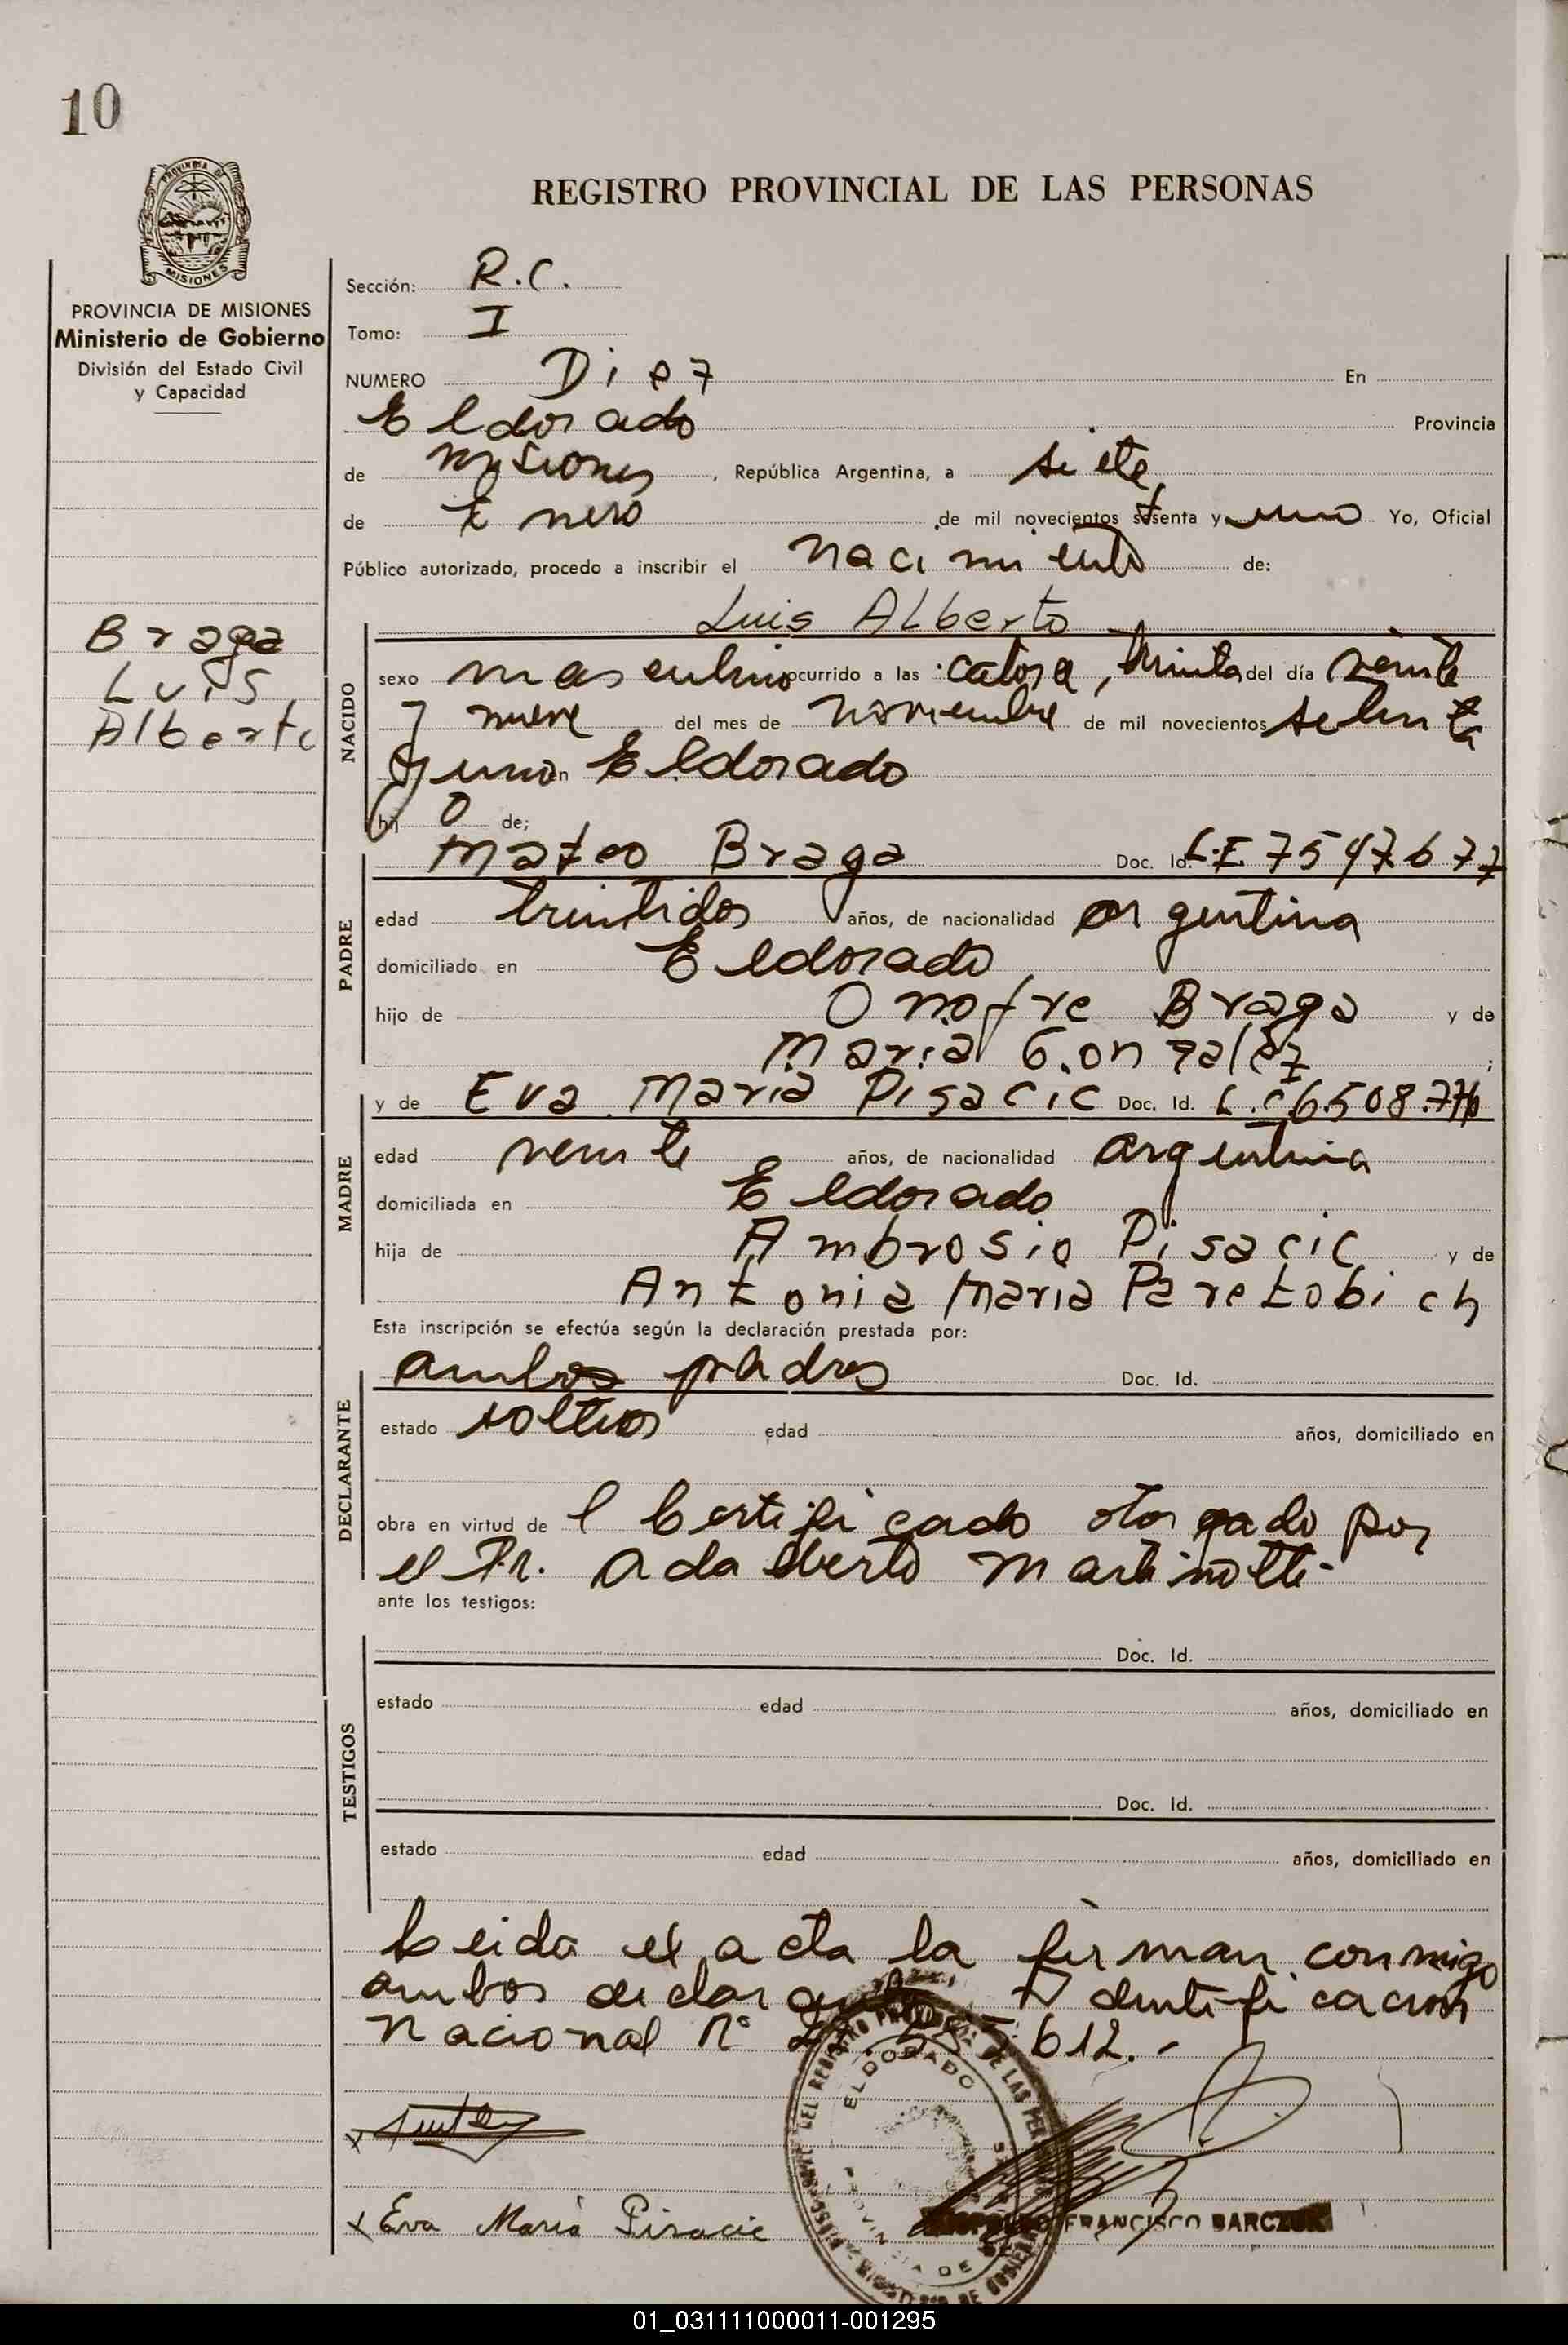 10
PROVINCIA DE
MISIONES
PROVINCIA DE MISIONES
Ministerio de Gobierno
División del Estado Civil
y Capacidad
Braga
Luis
Alberto
REGISTRO PROVINCIAL DE LAS PERSONAS
Sección: R.C.
Tomo: I
NUMERO Diez En
Eldorado Provincia
de Misiones, República Argentina, a siete
de Enero de mil novecientos setenta y uno Yo, Oficial
Público autorizado, procedo a inscribir el nacimiento de:
NACIDO
Luis Alberto
sexo masculino ocurrido a las catorce, treinta del día veinte
y nueve del mes de noviembre de mil novecientos setenta
y uno en Eldorado
hij o de;
PADRE
Mateo Braga Doc. Id. L.E. 7547677
edad treintidos años, de nacionalidad argentina
domiciliado en Eldorado
hijo de Onofre Braga y de
Maria Gonzalez ;
MADRE
y de Eva Maria Pisacic Doc. Id. L.C. 6.508.776
edad veinte años, de nacionalidad argentina
domiciliada en Eldorado
hija de Ambrosio Pisacic y de
Antonia Maria Paretobich
Esta inscripción se efectúa según la declaración prestada por:
DECLARANTE
ambos padres Doc. Id.
estado solteros edad años, domiciliado en
obra en virtud de l Certificado otorgado por
el Dr. Adalberto Martinotti-
ante los testigos:
TESTIGOS
Doc. Id.
estado edad años, domiciliado en
Doc. Id.
estado edad años, domiciliado en
Leida el acta la firman conmigo
ambos declarantes Identificacion
nacional Nº 612.-
ELDORADO
x Eva Maria Pisacic
FRANCISCO BARCZUK
01_031111000011-001295